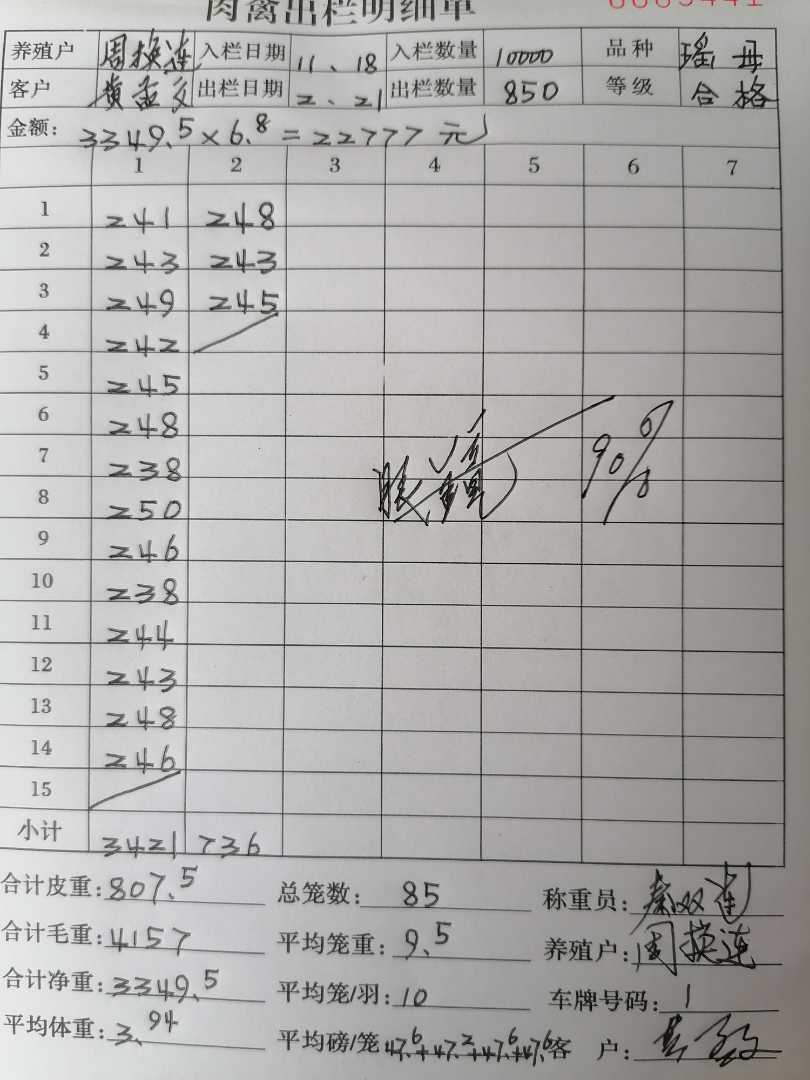 肉禽出栏明细单 0009441
养殖户 周换连 入栏日期 11、18 入栏数量 10000 品种 瑤母
客户 黄孟文 出栏日期 2、21 出栏数量 850 等级 合格
金额: 3349.5×6.8=22777元
1 2 3 4 5 6 7
1 241 248
2 243 243
3 249 245
4 242
5 245
6 248
7 238
8 250
9 246
10 238
11 244
12 243
13 248
14 246
15
90%
小计 3421 736
合计皮重: 807.5 总笼数: 85 称重员: 秦双连
合计毛重: 4157 平均笼重: 9.5 养殖户: 周换连
合计净重: 3349.5 平均笼/羽: 10 车牌号码: 1
平均体重: 3.94 平均磅/笼 47.6+47.2+47.6+47.6 客户: